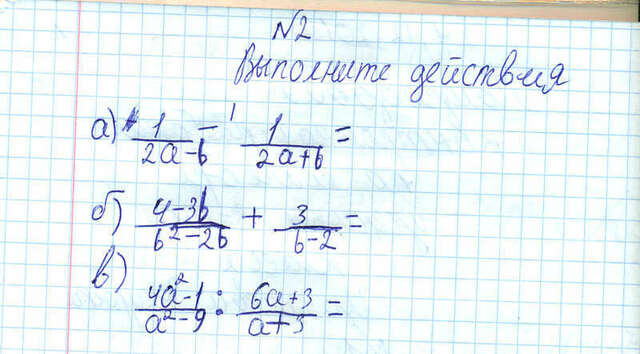 №2
Выполните действия
а) 1/(2a-b) - 1/(2a+b) =
б) (4-3b)/(b²-2b) + 3/(b-2) =
в) (4a²-1)/(a²-9) : (6a+3)/(a+3) =